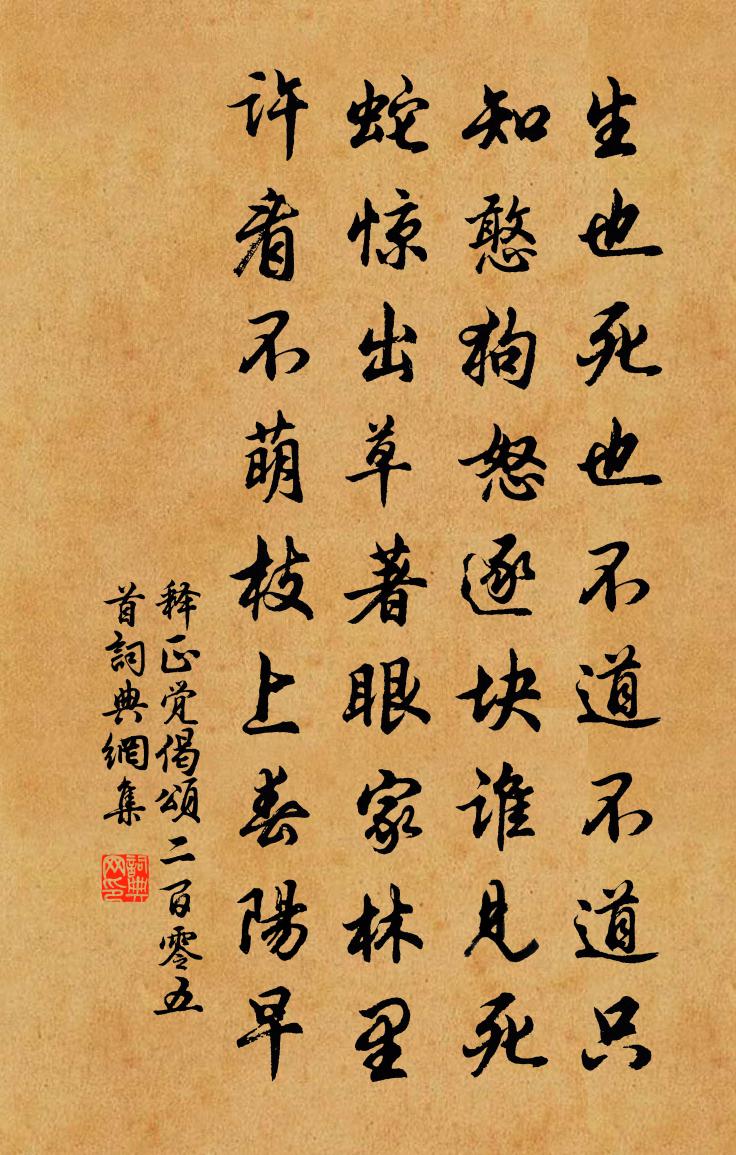 生也死也不道不道只
知憨狗怒逐块谁见死
蛇惊出草著眼家林里
许看不萌枝上春陽早
释正觉偈頌二百零五
首詞典網集
詞典
网印